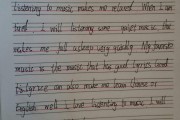 Listening to music makes me relaxed. When I am
tired, I will listening some quiet music, that
makes me fall asleep very quickly. My favorite
music is the music that has good lyrics and
can also make me learn Chinese or
English well. I love listening to music. I will